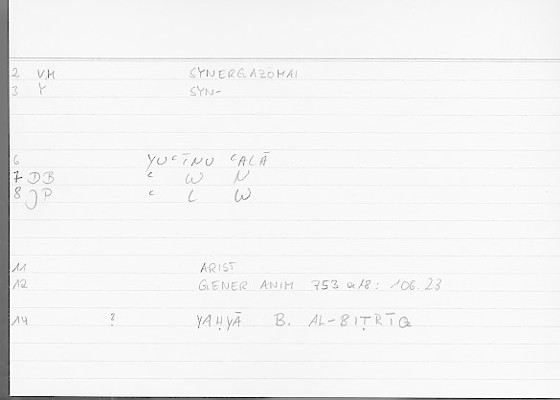 2 VH SYNERGAZŌMAI
3 Y SYN-
6 YUʿĪNU ʿALĀ
7 DB ʿ W N
8 JP ʿ L W
11 ARIST
12 GENER ANIM 753 a18: 106.23
14 ? YAḤYĀ B. AL-BIṬRĪQ